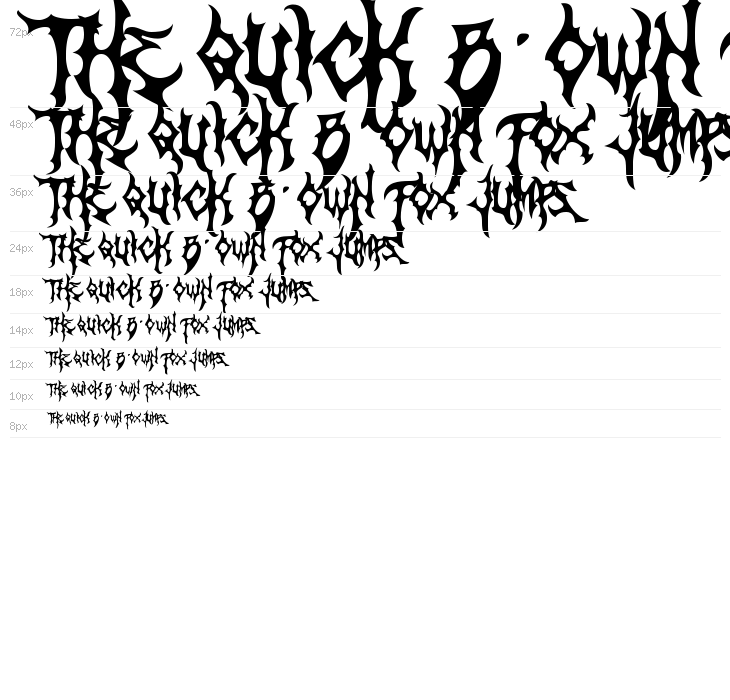 72px THE QUICK B·OWN
48px THE QUICK B·OWN FOX JUMPS
36px THE QUICK B·OWN FOX JUMPS
24px THE QUICK B·OWN FOX JUMPS
18px THE QUICK B·OWN FOX JUMPS
14px THE QUICK B·OWN FOX JUMPS
12px THE QUICK B·OWN FOX JUMPS
10px THE QUICK B·OWN FOX JUMPS
8px THE QUICK B·OWN FOX JUMPS